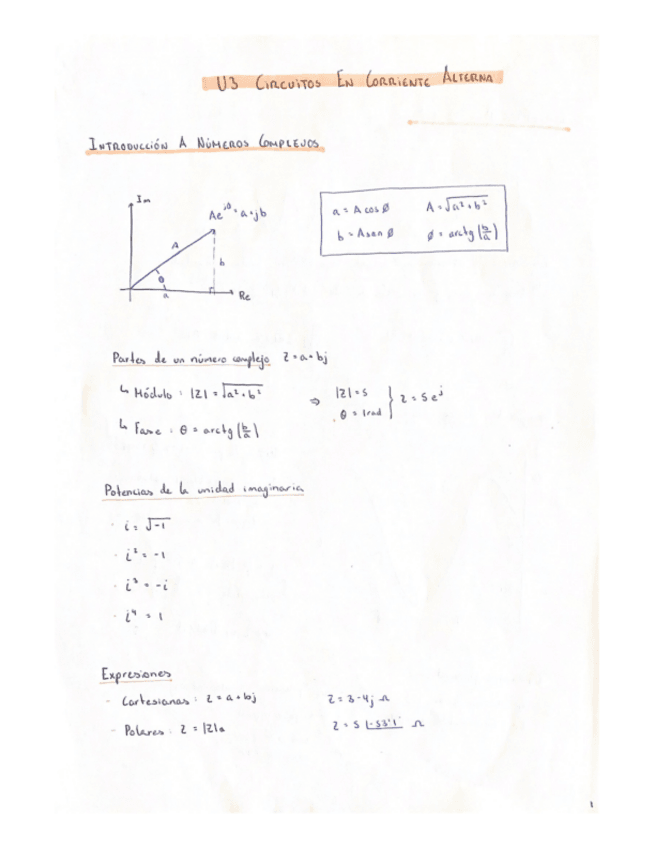 U3 CIRCUITOS EN CORRIENTE ALTERNA
INTRODUCCIÓN A NÚMEROS COMPLEJOS
Im
Ae^jθ = a+jb
A
b
θ
a
Re
a = A cos ø    A = √a²+b²
b = A sen ø    ø = arctg (b/a)
Partes de un número complejo z = a+bj
↳ Módulo: |z| = √a²+b²
↳ Fase: θ = arctg (b/a)
⇒ |z| = 5
θ = 1rad } z = 5e^j
Potencias de la unidad imaginaria
- i = √-1
- i² = -1
- i³ = -i
- i⁴ = 1
Expresiones
- Cartesianas: z = a+bj    z = 3-4j Ω
- Polares: z = |z|α    z = 5 |-53'1 Ω
1